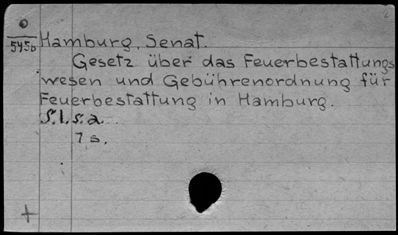 O
545b
Hamburg, Senat.
Gesetz über das Feuerbestattungs
wesen und Gebührenordnung für
Feuerbestattung in Hamburg.
S.l.s.a.
7 s.
+